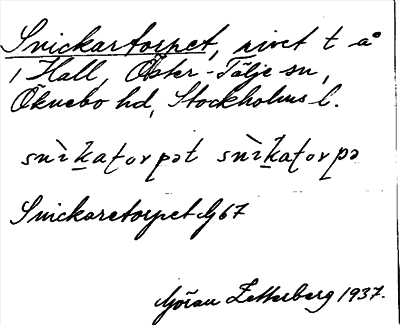 Snickartorpet, rivet t å
i Hall, Öster-Tälje sn,
Öknebo hd, Stockholms l.
snìkat̩orpət snìkat̩orpə
Snickaretorpet G 67
Göran Zetterberg 1937.